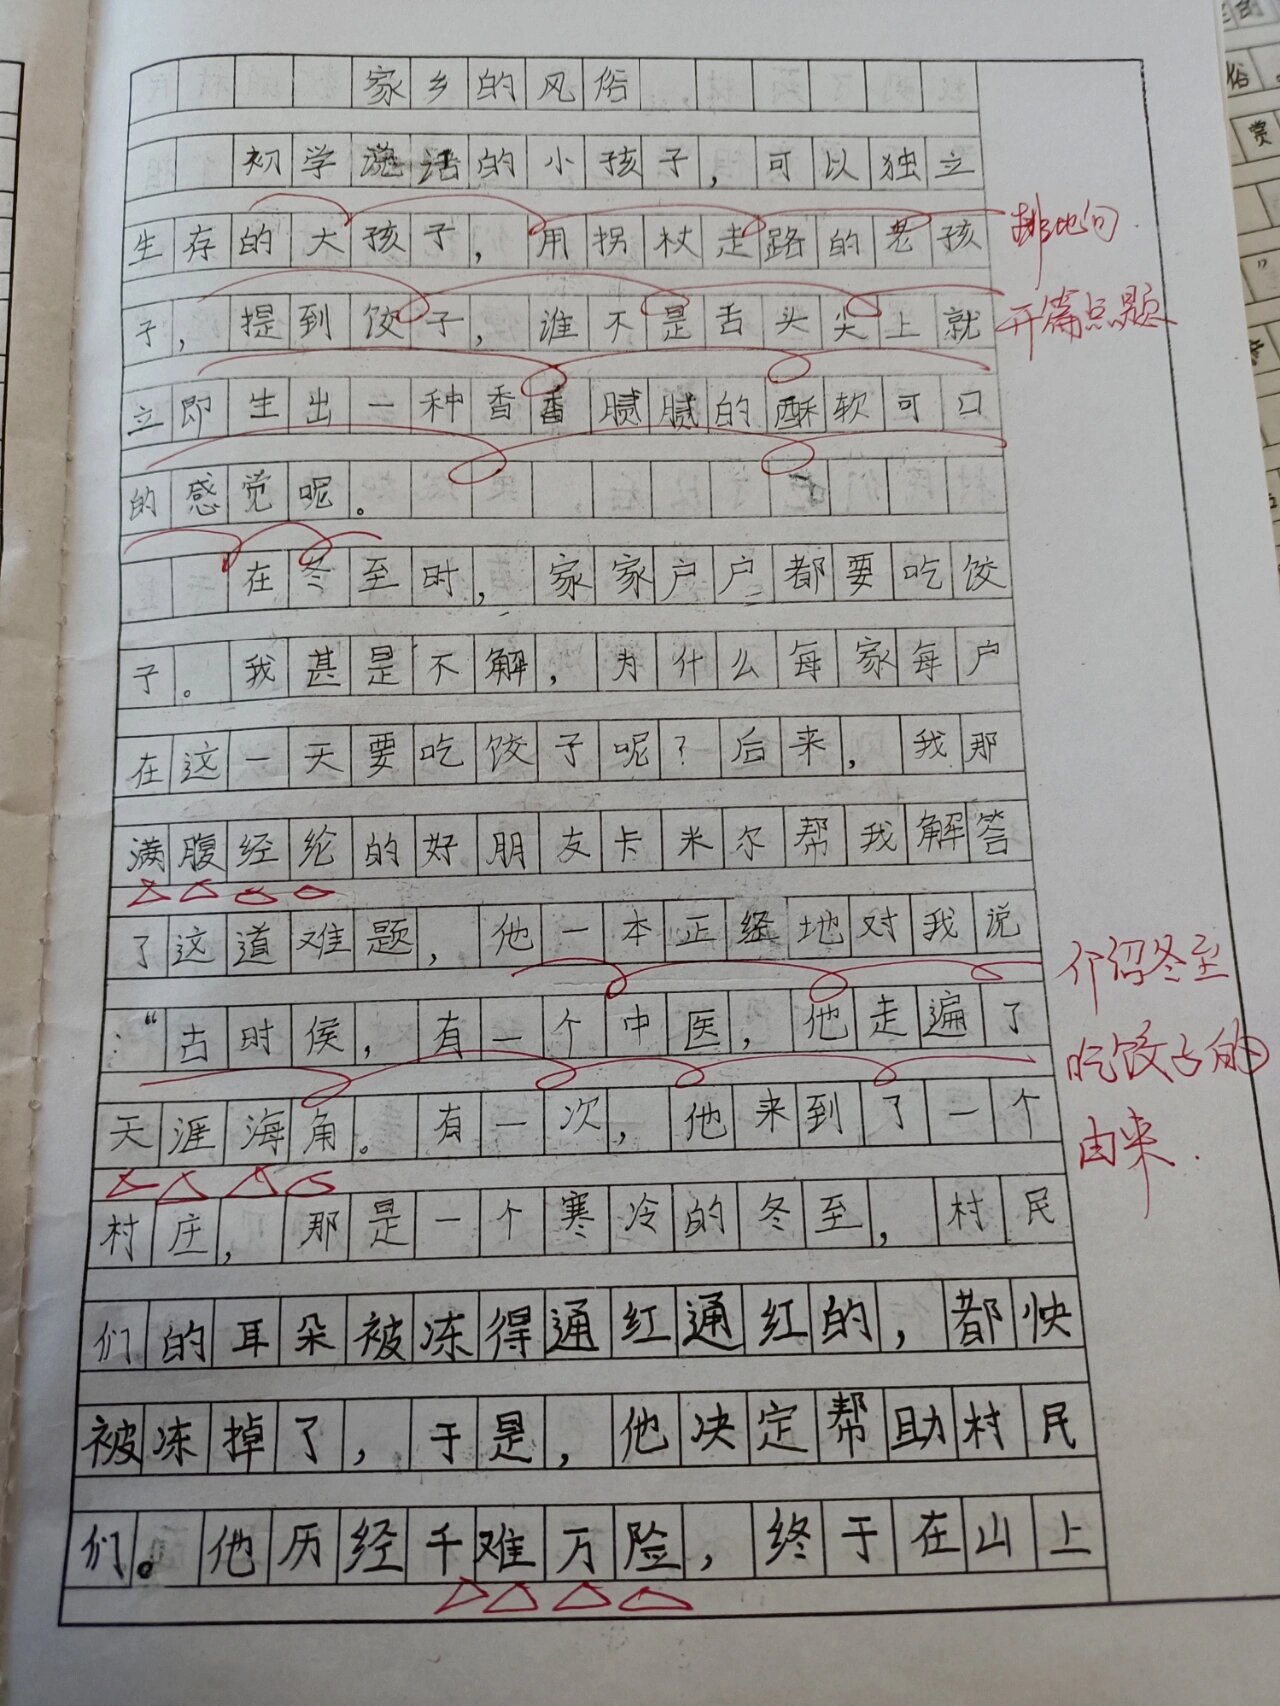 家乡的风俗
初学说话的小孩子，可以独立
生存的大孩子，用拐杖走路的老孩
子，提到饺子，谁不是舌头尖上就
立即生出一种香香腻腻的酥软可口
的感觉呢。
在冬至时，家家户户都要吃饺
子。我甚是不解，为什么每家每户
在这一天要吃饺子呢？后来，我那
满腹经纶的好朋友卡米尔帮我解答
了这道难题，他一本正经地对我说
：“古时侯，有一个中医，他走遍了
天涯海角。有一次，他来到了一个
村庄，那是一个寒冷的冬至，村民
们的耳朵被冻得通红通红的，都快
被冻掉了，于是，他决定帮助村民
们。他历经千难万险，终于在山上
排比句.
开篇点题
介绍冬至
吃饺子的
由来.
俗
赏